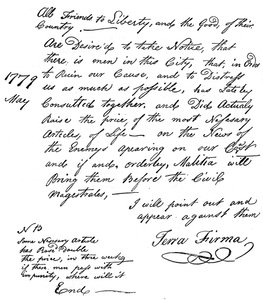 All Friends to Liberty, and the Good of their
Country. —
Are Desired to take Notice, that
there is men in this City, that, in Order
to Ruin our Cause, and to Distress
us as much as possible, has Lately
Consulted together, and Did Actualy
Raise the price, of the most Nessasary
Articles, of Life — on the News of
the Enemys apearing on our Coast
and if and, orderley, Malitia will
Bring them Before the Civil
Magestrates, —
I will point out and
appear against them
Terra Firma
1779
May
N B
Some Nessary Article
has Raisd Double
the price, in three weeks
if these men pass with
impunity, where will it
End —